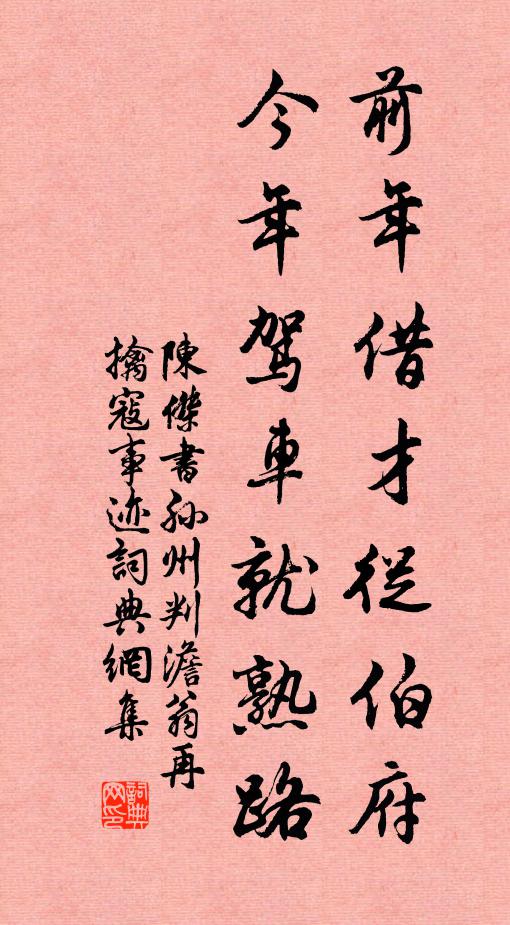 前年借才從伯府
今年駕車就熟路
陳傑書孙州判澹翁再
擒寇事迹詞典網集
詞典网印